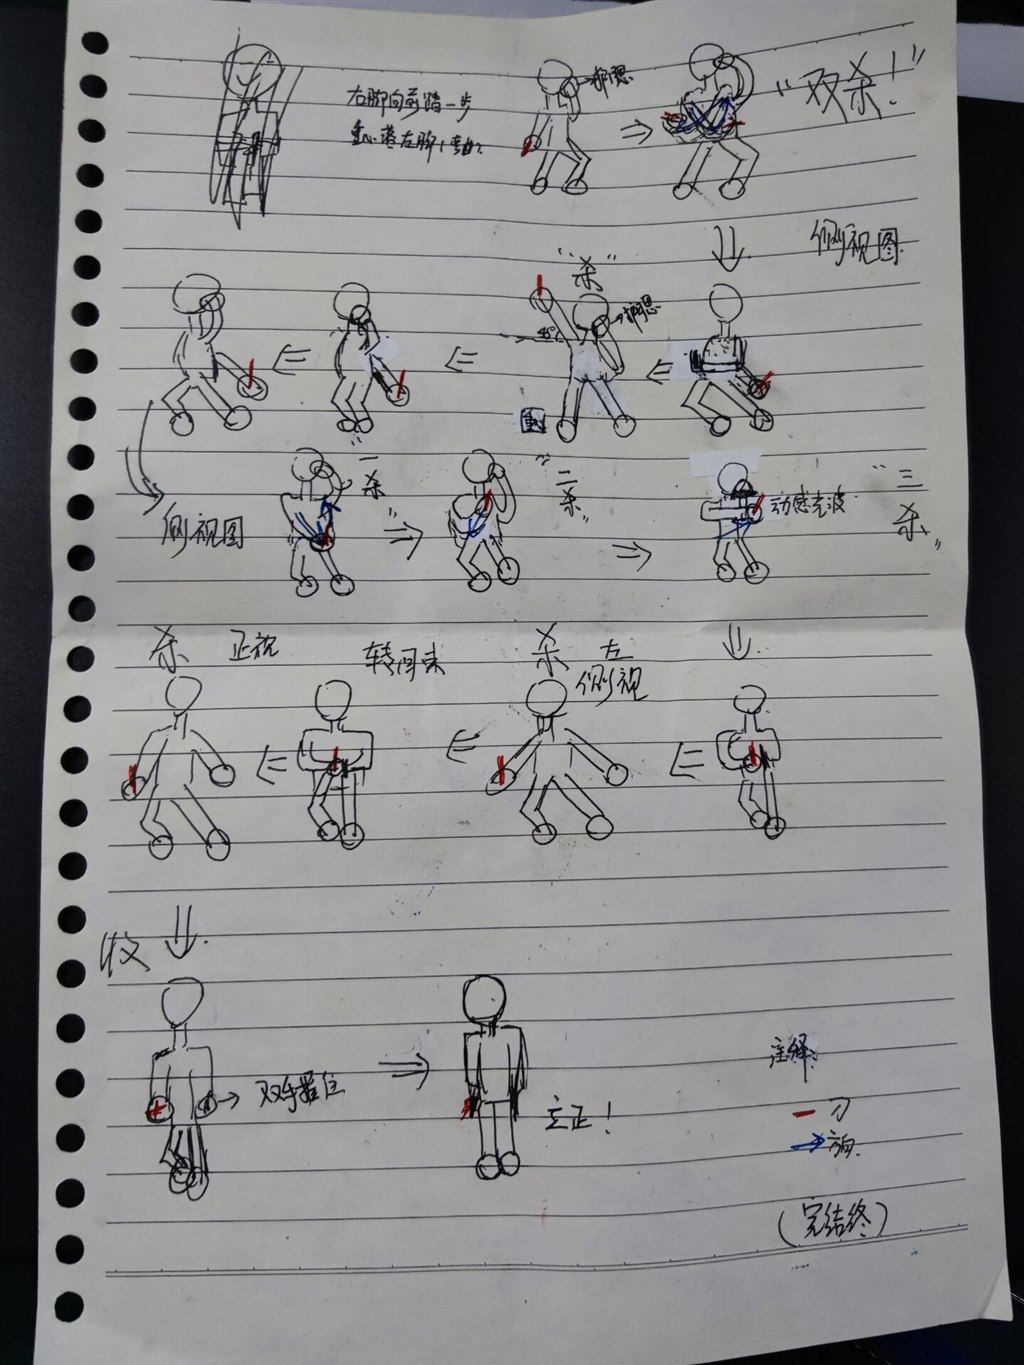 右脚向前踏一步
重心落左脚(弯曲)
拥忍
"双杀!"
侧视图
"杀"
重心
侧视图
"一杀"
"二杀"
动感光波
"三杀"
杀 正视
转回来
杀 左侧视
收
双手握位
立正!
注释:
刀
方向.
(完结终)